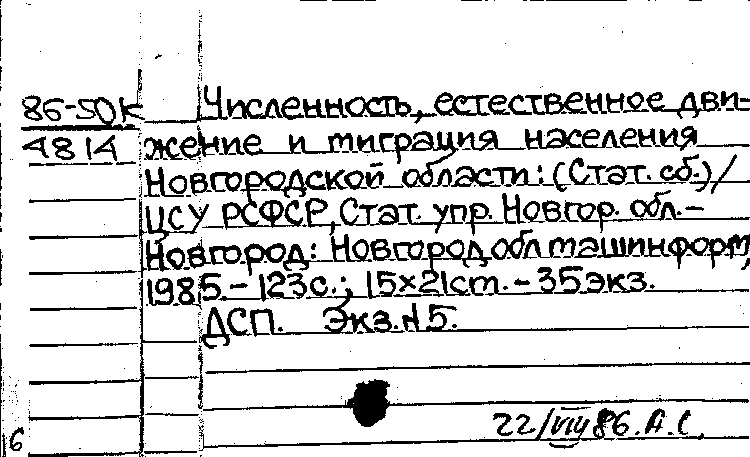 86-50К
4814
Численность, естественное дви-
жение и миграция населения
Новгородской области: (Стат. сб.) /
ЦСУ РСФСР, Стат. упр. Новгор. обл. –
Новгород: Новгородоблмашинформ,
1985. – 123с.; 15×21см. – 35экз.
ДСП. Экз. №5.
22/VIII 86. А.С.
6